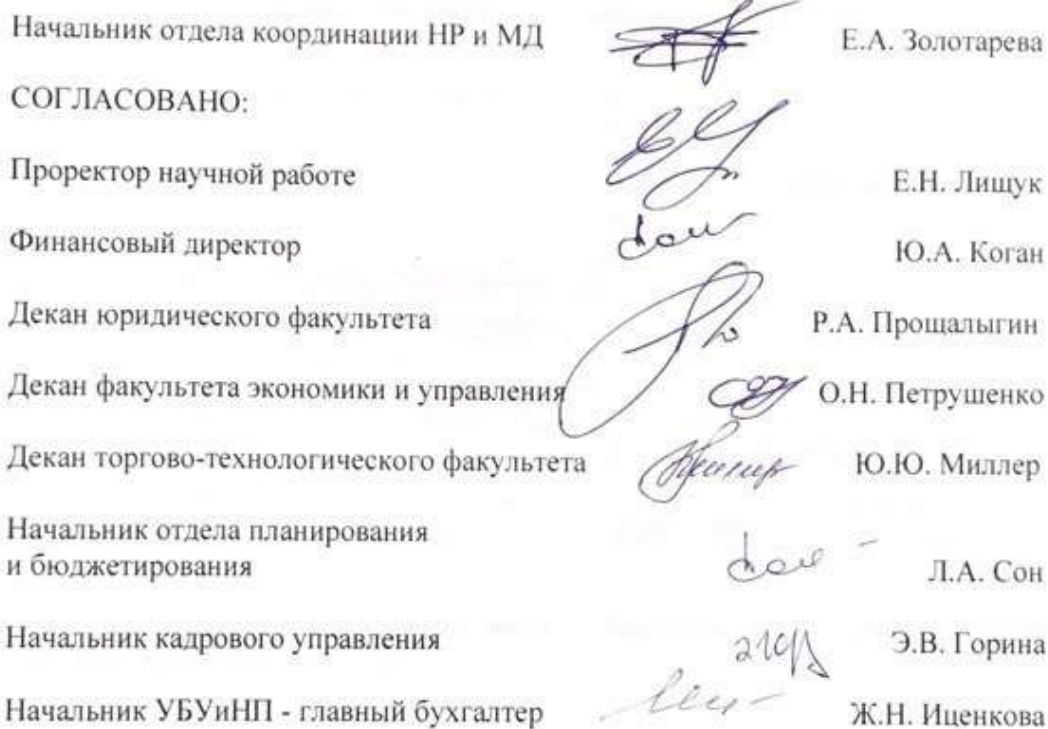 Начальник отдела координации НР и МД Е.А. Золотарева
СОГЛАСОВАНО:
Проректор научной работе Е.Н. Лищук
Финансовый директор Ю.А. Коган
Декан юридического факультета Р.А. Прощалыгин
Декан факультета экономики и управления О.Н. Петрушенко
Декан торгово-технологического факультета Ю.Ю. Миллер
Начальник отдела планирования
и бюджетирования Л.А. Сон
Начальник кадрового управления Э.В. Горина
Начальник УБУиНП - главный бухгалтер Ж.Н. Иценкова